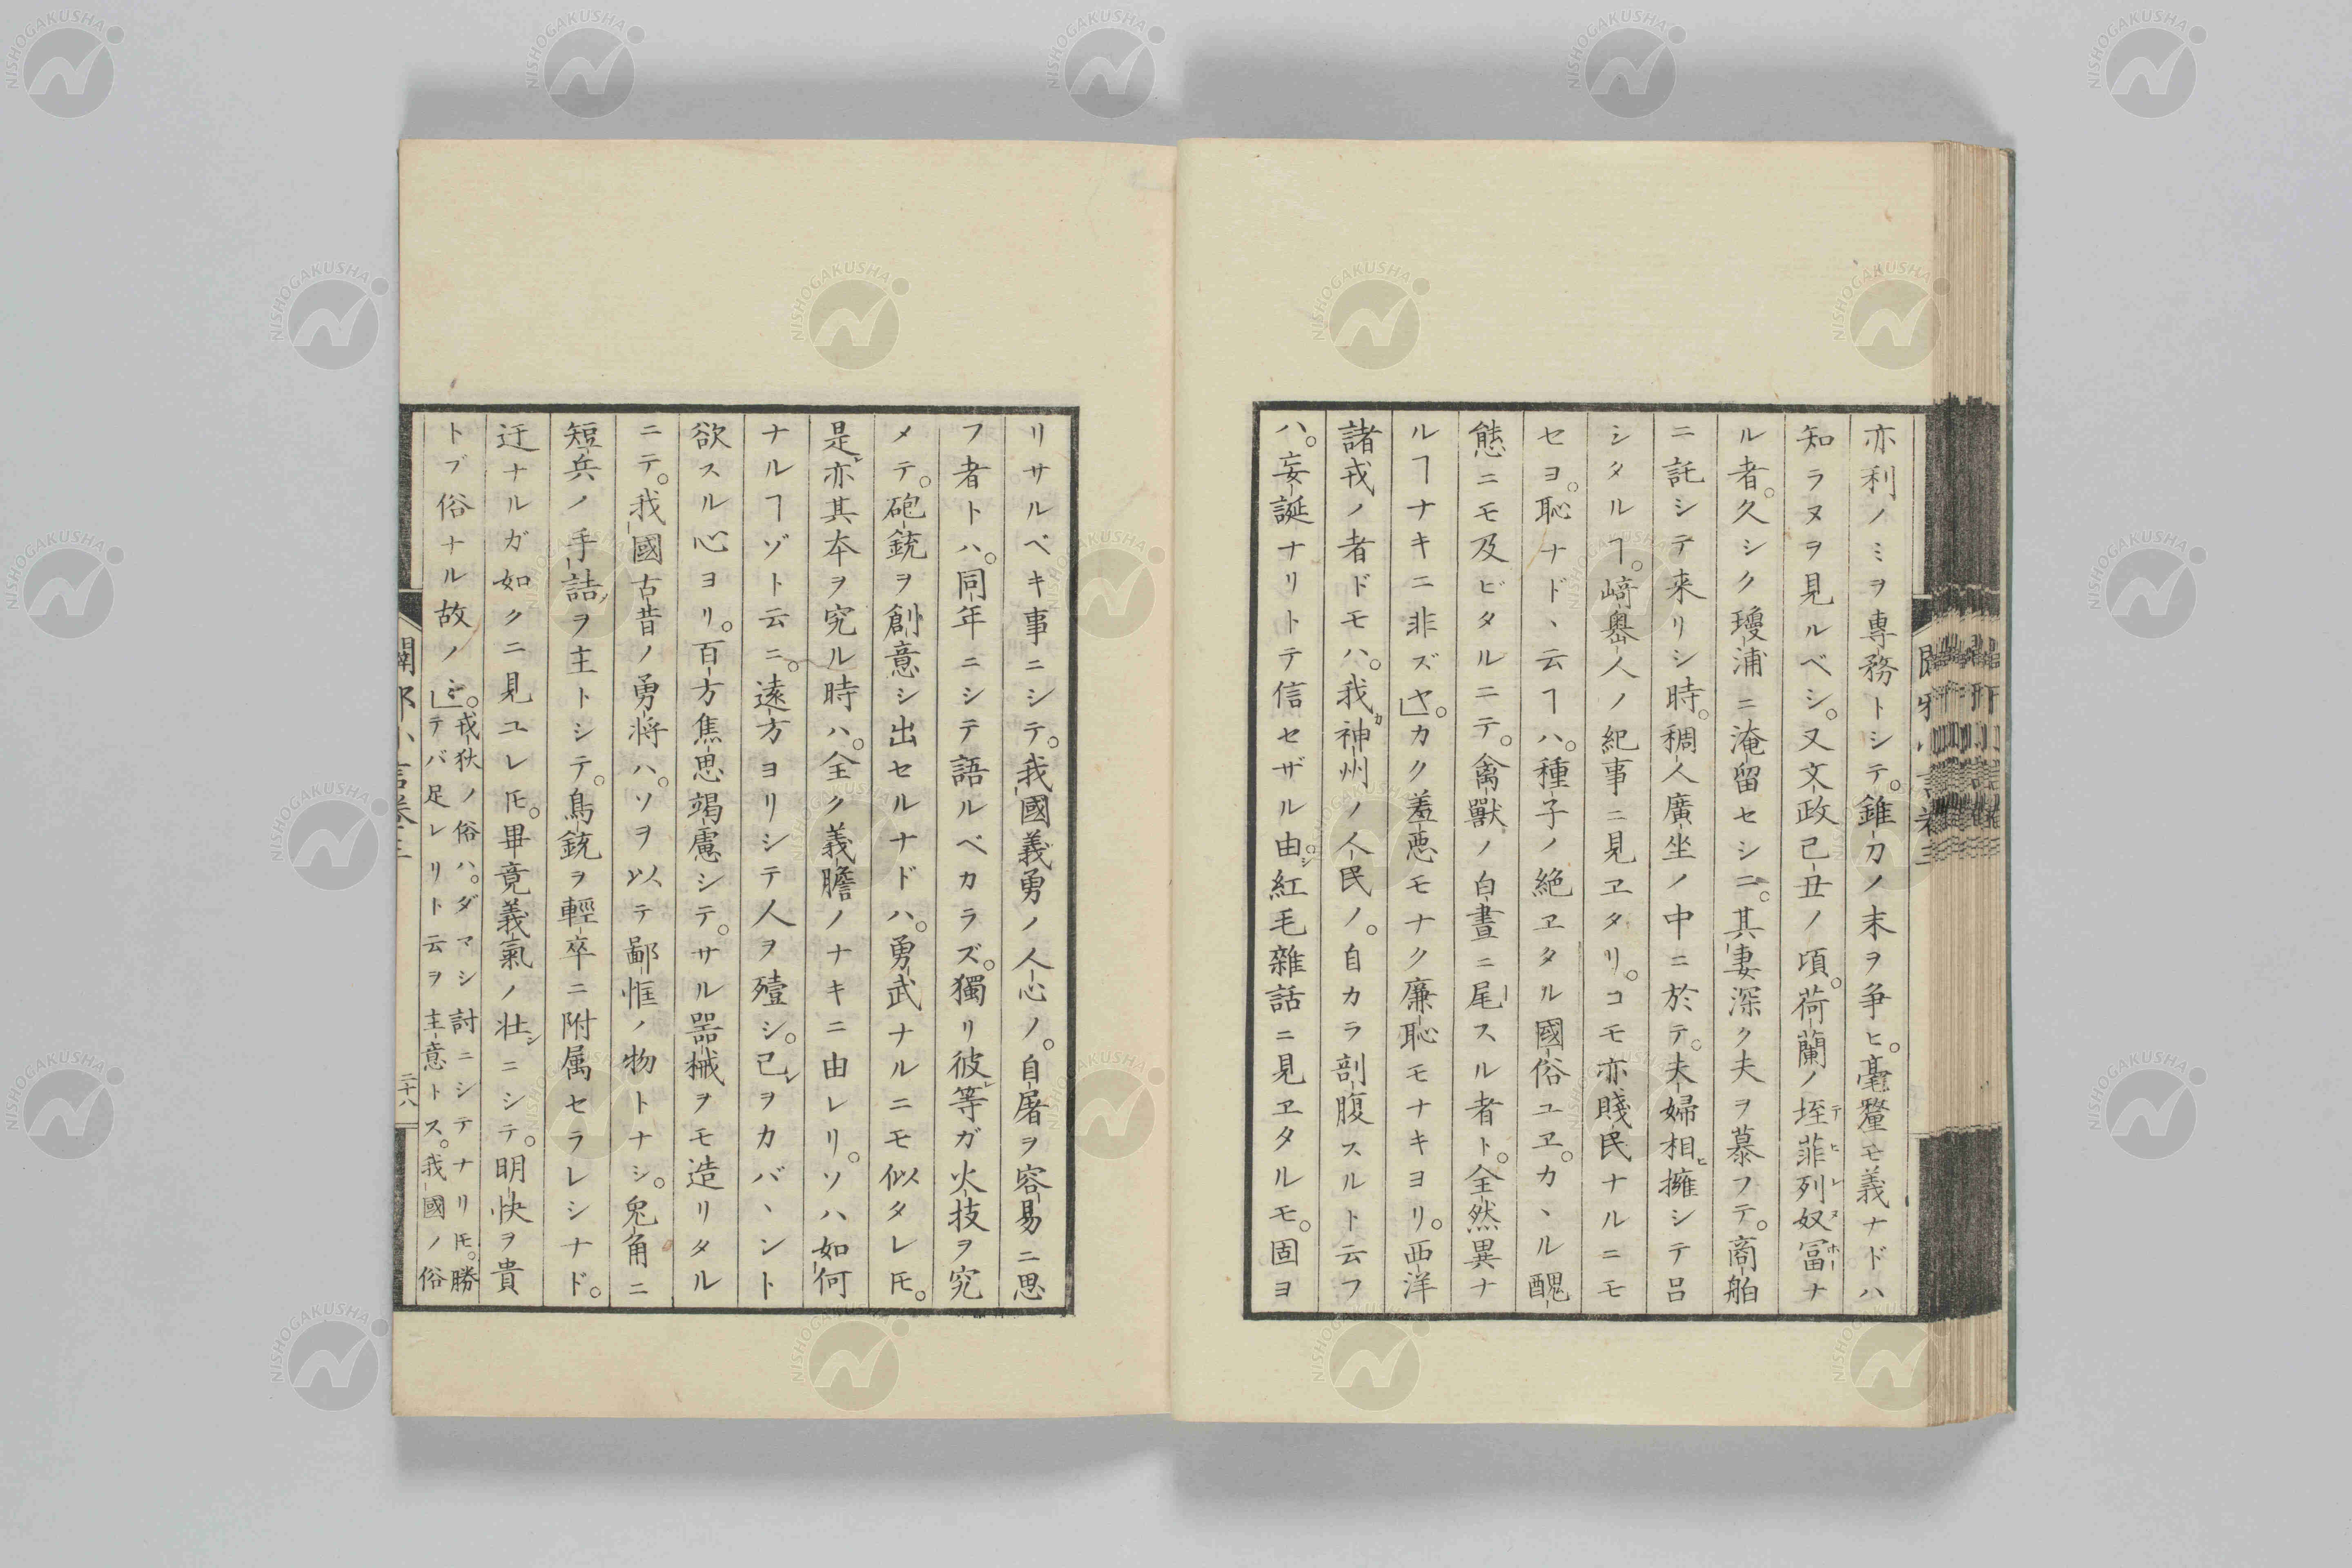 亦利ノミヲ專務トシテ。錐刀ノ末ヲ争ヒ。毫釐モ義ナドハ
知ラヌヲ見ルベシ。又文政己丑ノ頃。荷蘭ノ垤菲列奴冨ナ
テヒレヌホー
ル者。久シク瓊浦ニ淹留セシニ。其妻深ク夫ヲ慕フテ。商舶
ニ託シテ来リシ時。稠人廣坐ノ中ニ於テ。夫婦相擁シテ呂
シタルヿ。﨑嶴人ノ紀事ニ見ヱタリ。コモ亦賤民ナルニモ
セヨ。恥ナドヽ云ヿハ。種子ノ絶ヱタル國俗ユヱ。カヽル醜
態ニモ及ビタルニテ。禽獸ノ白晝ニ尾スル者ト。全然異ナ
ルヿナキニ非ズヤ。カク羞惡モナク廉恥モナキヨリ。西洋
諸戎ノ者ドモハ。我神州ノ人民ノ。自カラ剖腹スルト云フ
ハ。妄誕ナリトテ信セザル由。紅毛雜話ニ見ヱタルモ。固ヨ
リサルベキ事ニシテ。我國義勇ノ人心ノ。自屠ヲ容易ニ思
フ者トハ。同年ニシテ語ルベカラズ。獨リ彼等ガ火技ヲ究
メテ。砲銃ヲ創意シ出セルナドハ。勇武ナルニモ似タレ𪜈。
是亦其本ヲ究ル時ハ。全ク義膽ノナキニ由レリ。ソハ如何
ナルヿゾト云ニ。遠方ヨリシテ人ヲ殪シ。己ヲカバヽント
欲スル心ヨリ。百方焦思竭慮シテ。サル器械ヲモ造リタル
ニテ。我國古昔ノ勇将ハ。ソヲ以テ鄙恇ノ物トナシ。兔角ニ
短兵ノ手詰ヲ主トシテ。鳥銃ヲ輕卒ニ附属セラレシナド。
迂ナルガ如クニ見ユレ𪜈。畢竟義氣ノ壮ニシテ。明快ヲ貴
トブ俗ナル故ノミ。
戎狄ノ俗ハ。ダマシ討ニシテナリ𪜈。勝
テバ足レリト云ヲ主意トス。我國ノ俗
二十八